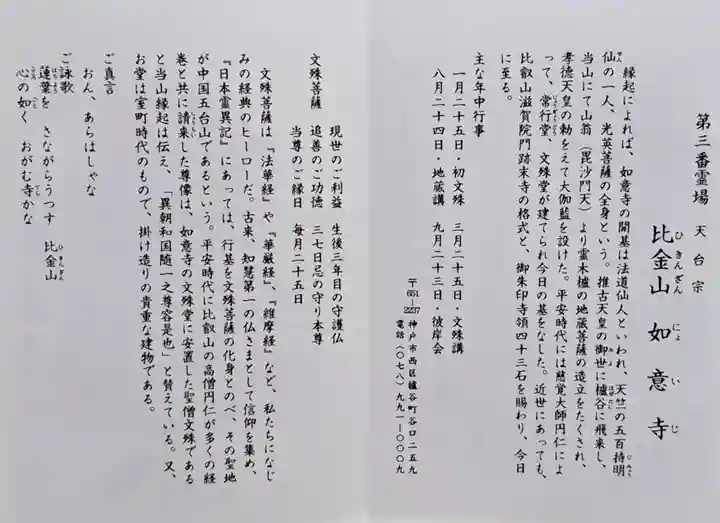 第三番霊場 天台宗
比金山 如意寺
ひきんざん にょいじ
縁起によれば、如意寺の開基は法道仙人といわれ、天竺の五百持明
仙の一人、光英菩薩の全身という。推古天皇の御世に櫨谷に飛来し、
当山にて山翁（毘沙門天）より霊木櫨の地蔵菩薩の造立をたくされ、
孝徳天皇の勅をえて大伽藍を設けた。平安時代には慈覚大師円仁によ
って、常行堂、文殊堂が建てられ今日の基をなした。近世にあっても、
比叡山滋賀院門跡末寺の格式と、御朱印寺領四十三石を賜わり、今日
に至る。
主な年中行事
一月二十五日・初文殊 三月二十五日・文殊講
八月二十四日・地蔵講 九月二十三日・彼岸会
〒651-2237 神戸市西区櫨谷町谷口二五九
電話（〇七八）九九一－〇〇〇九
現世のご利益 生後三年目の守護仏
文殊菩薩 追善のご功徳 三七日忌の守り本尊
当尊のご縁日 毎月二十五日
文殊菩薩は『法華経』や『華厳経』、『維摩経』など、私たちになじ
みの経典のヒーローだ。古来、知慧第一の仏さまとして信仰を集め、
『日本霊異記』にあっては、行基を文殊菩薩の化身とのべ、その聖地
が中国五台山であるという。平安時代に比叡山の高僧円仁が多くの経
巻と共に請来した尊像は、如意寺の文殊堂に安置した聖僧文殊である
と当山縁起は伝え、「異朝和国随一之尊容是也」と賛えている。又、
お堂は室町時代のもので、掛け造りの貴重な建物である。
ご真言
おん、あらはしゃな
ご詠歌
蓮葉を さながらうつす 比金山
心の如く おがむ寺かな